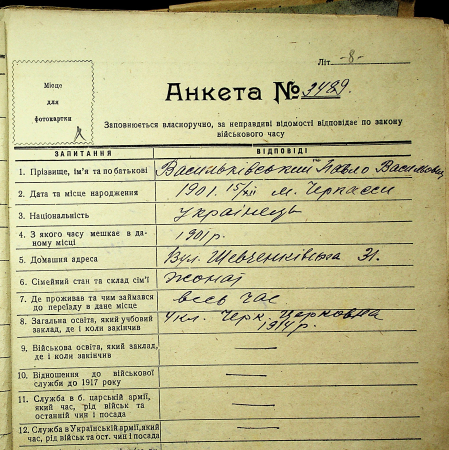 Літ. -8-
Місце
для
фотокартки
Анкета № 3489.
Заповнюється власноручно, за неправдиві відомості відповідає по закону
військового часу
ЗАПИТАННЯ
ВІДПОВІДІ
1. Прізвище, ім'я та по батькові
Васильківський Павло
2. Дата та місце народження
1901. 15/XII м. Черкасси
3. Національність
Українець
4. З якого часу мешкає в да-
ному місці
1901 р.
5. Домашня адреса
Вул. Шевченківська 31.
6. Сімейний стан та склад сім'ї
Жонат
7. Де проживав та чим займався
до переїзду в дане місце
весь час
8. Загальна освіта, який учбовий
заклад, де і коли закінчив
4 кл. Черк. Церковна
1914 р.
9. Військова освіта, який заклад,
де і коли закінчив
—
10. Відношення до військової
служби до 1917 року
—
11. Служба в б. царській армії,
який час, рід військ та
останній чин і посада
—
12. Служба в Українській армії, який
час, рід військ та ост. чин і посада
—